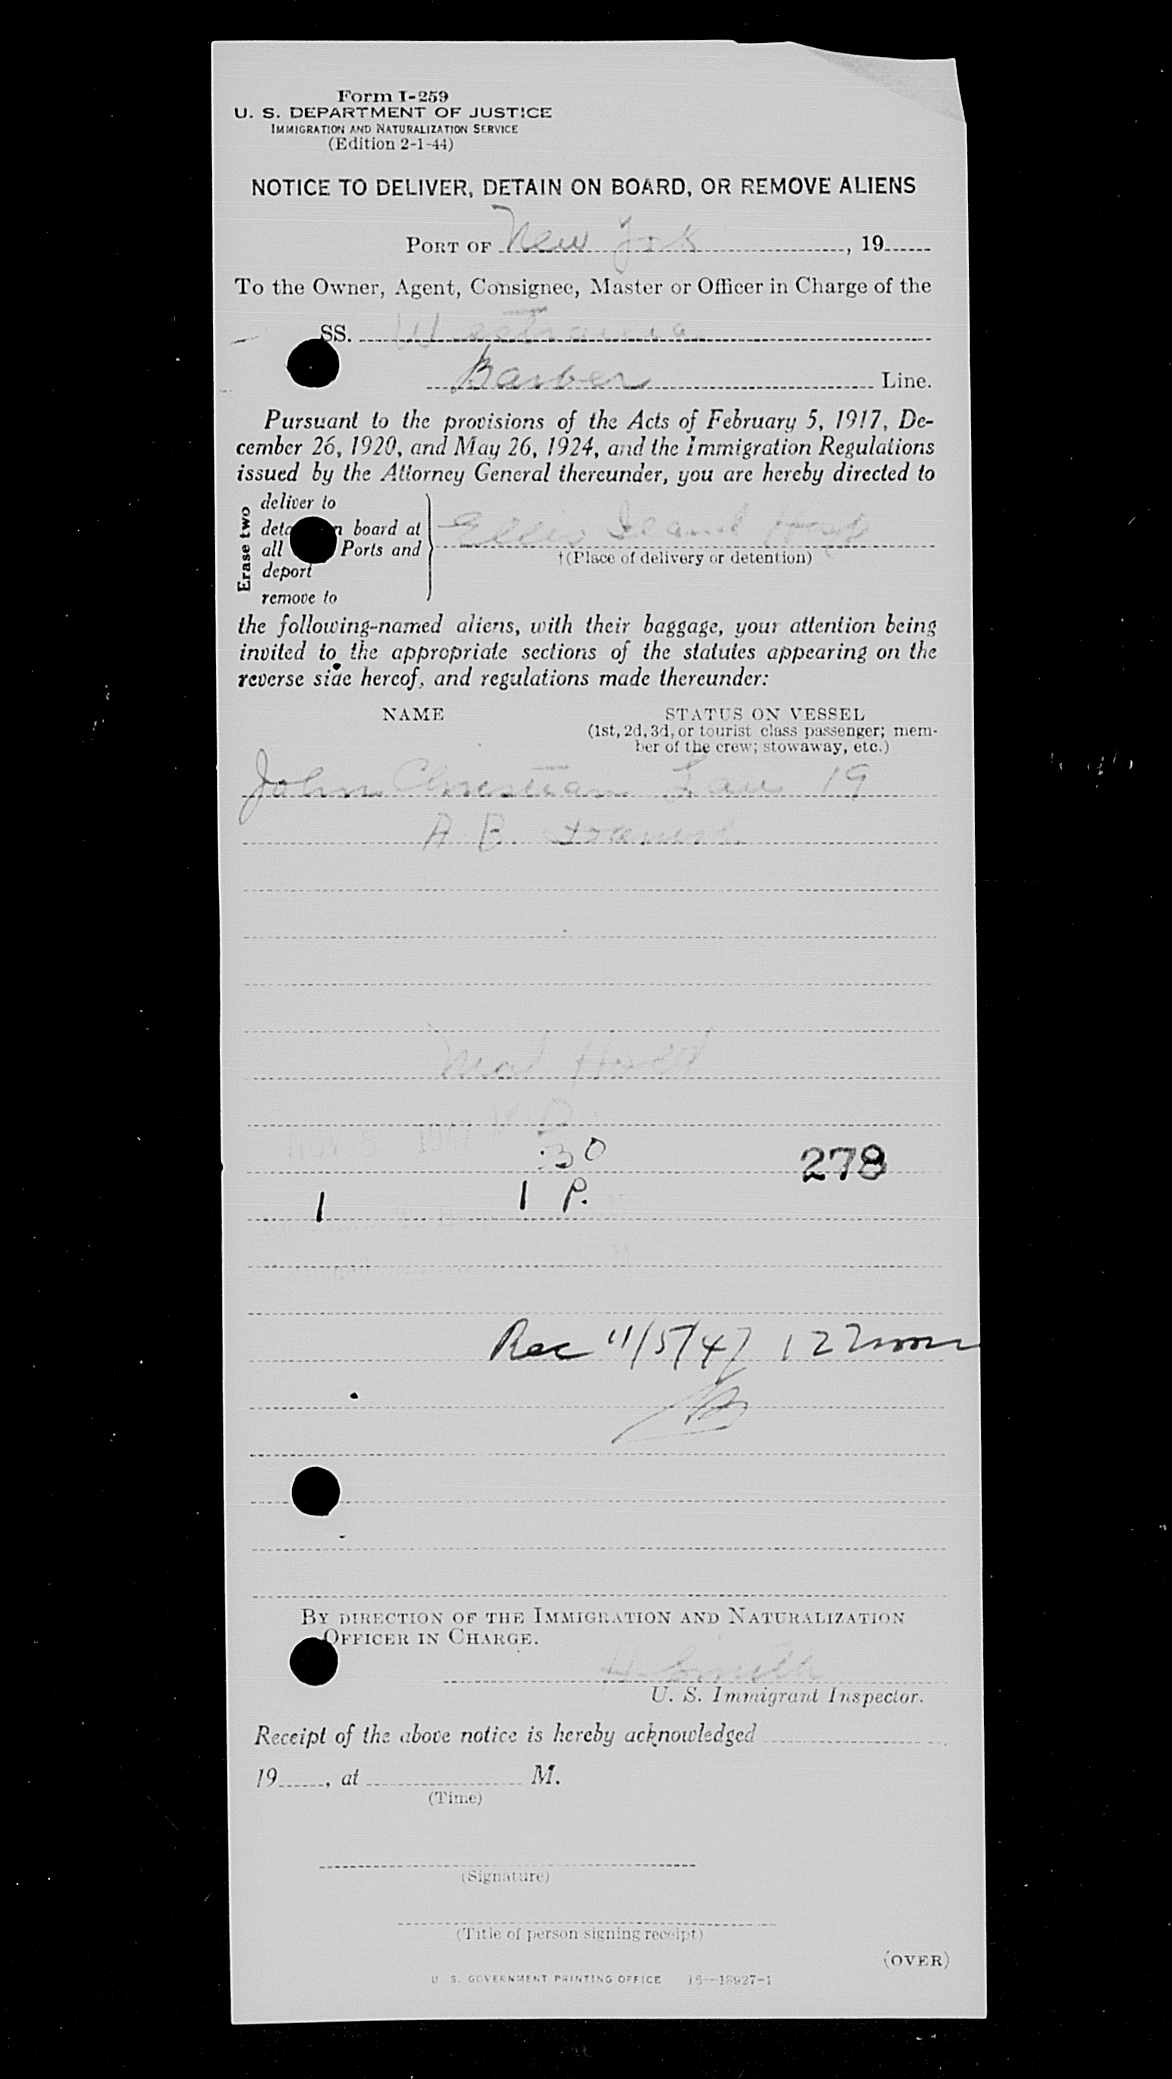 Form I-259
U. S. DEPARTMENT OF JUSTICE
IMMIGRATION AND NATURALIZATION SERVICE
(Edition 2-1-44)
NOTICE TO DELIVER, DETAIN ON BOARD, OR REMOVE ALIENS
PORT OF New York, 19
To the Owner, Agent, Consignee, Master or Officer in Charge of the
SS.
Barber Line.
Pursuant to the provisions of the Acts of February 5, 1917, De-
cember 26, 1920, and May 26, 1924, and the Immigration Regulations
issued by the Attorney General thereunder, you are hereby directed to
Erase two
deliver to
board at
all Ports and
deport
remove to
Ellis Island Hosp
†(Place of delivery or detention)
the following-named aliens, with their baggage, your attention being
invited to the appropriate sections of the statutes appearing on the
reverse side hereof, and regulations made thereunder:
NAME STATUS ON VESSEL
(1st, 2d, 3d, or tourist class passenger; mem-
ber of the crew; stowaway, etc.)
John Christian Lau 19
A. B.
Med Hold
30
278
1 1 P.
Rec 11/5/47 12 noon
BY DIRECTION OF THE IMMIGRATION AND NATURALIZATION
OFFICER IN CHARGE.
U. S. Immigrant Inspector.
Receipt of the above notice is hereby acknowledged
19, at M.
(Time)
(Signature)
(Title of person signing receipt)
(OVER)
U. S. GOVERNMENT PRINTING OFFICE 16—18927-1